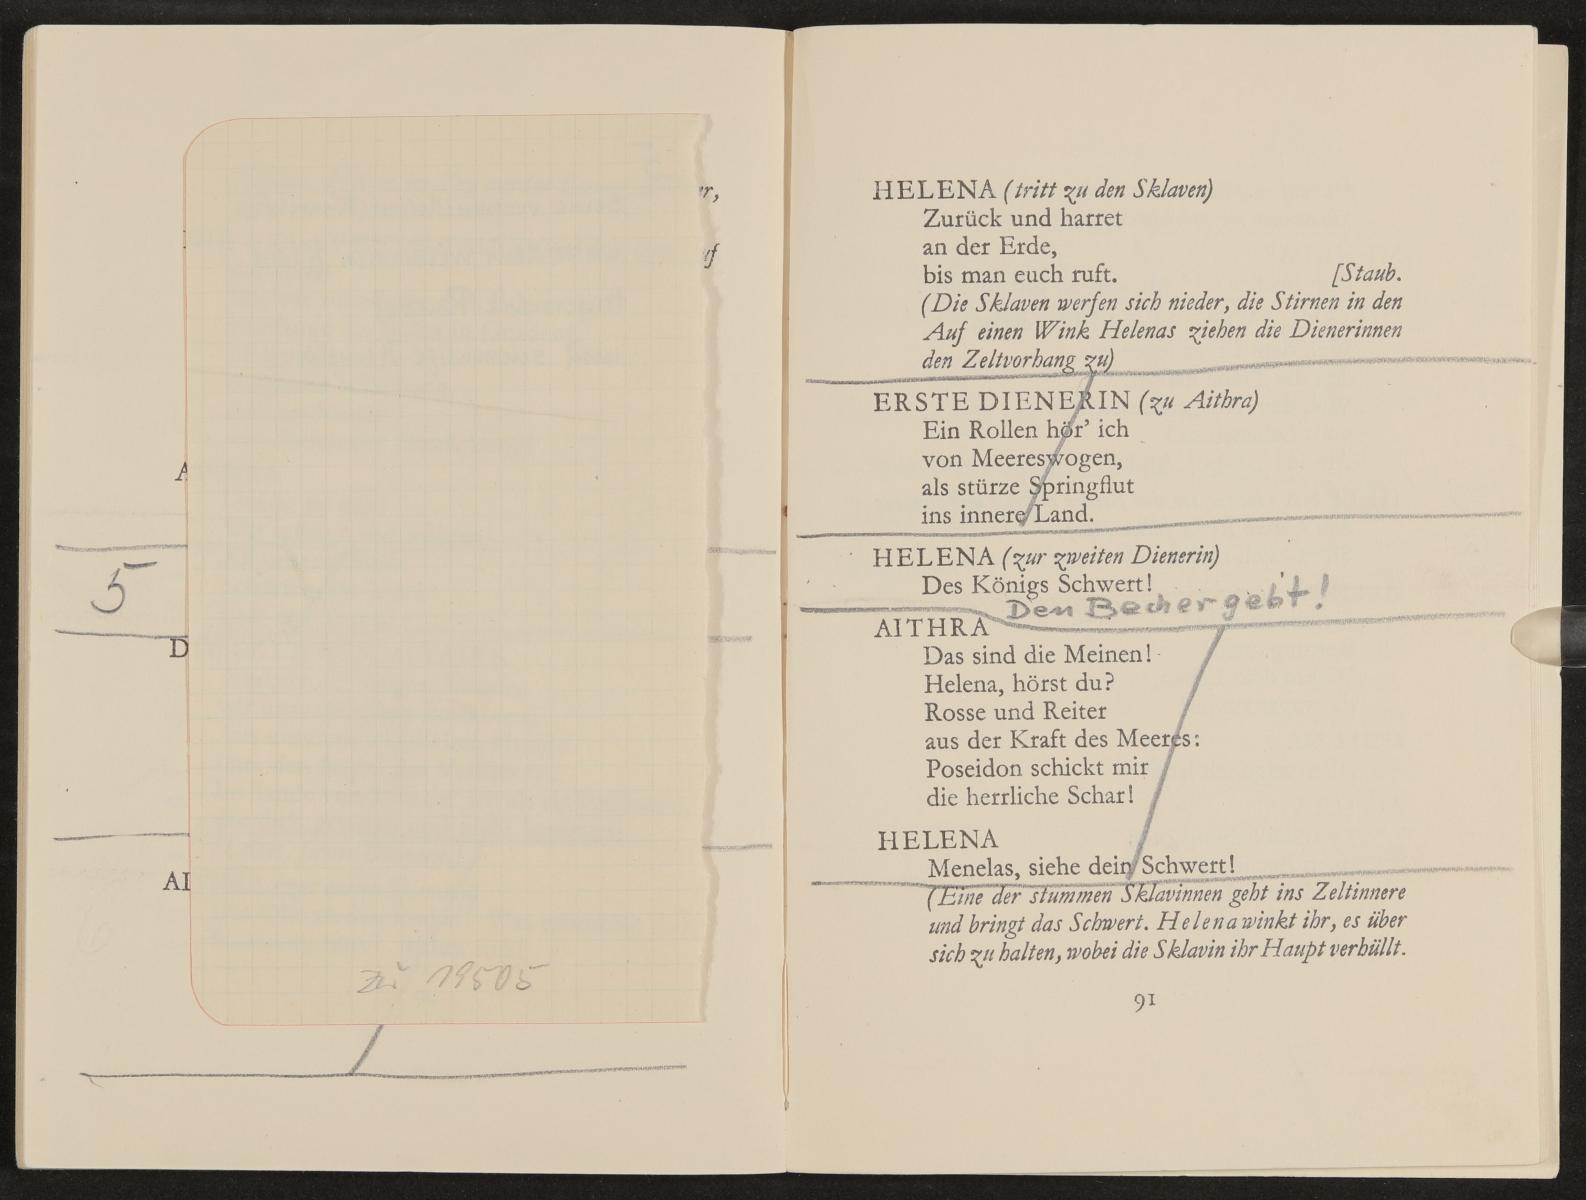 r,
uf
A
5
D
AI
zu 19505
HELENA (tritt zu den Sklaven)
Zurück und harret
an der Erde,
bis man euch ruft. [Staub.
(Die Sklaven werfen sich nieder, die Stirnen in den
Auf einen Wink Helenas ziehen die Dienerinnen
den Zeltvorhang zu)
ERSTE DIENERIN (zu Aithra)
Ein Rollen hör' ich
von Meereswogen,
als stürze Springflut
ins innere Land.
HELENA (zur zweiten Dienerin)
Des Königs Schwert!
Den Becher gebt!
AITHRA
Das sind die Meinen!
Helena, hörst du?
Rosse und Reiter
aus der Kraft des Meeres:
Poseidon schickt mir
die herrliche Schar!
HELENA
Menelas, siehe dein Schwert!
(Eine der stummen Sklavinnen geht ins Zeltinnere
und bringt das Schwert. Helena winkt ihr, es über
sich zu halten, wobei die Sklavin ihr Haupt verhüllt.
91